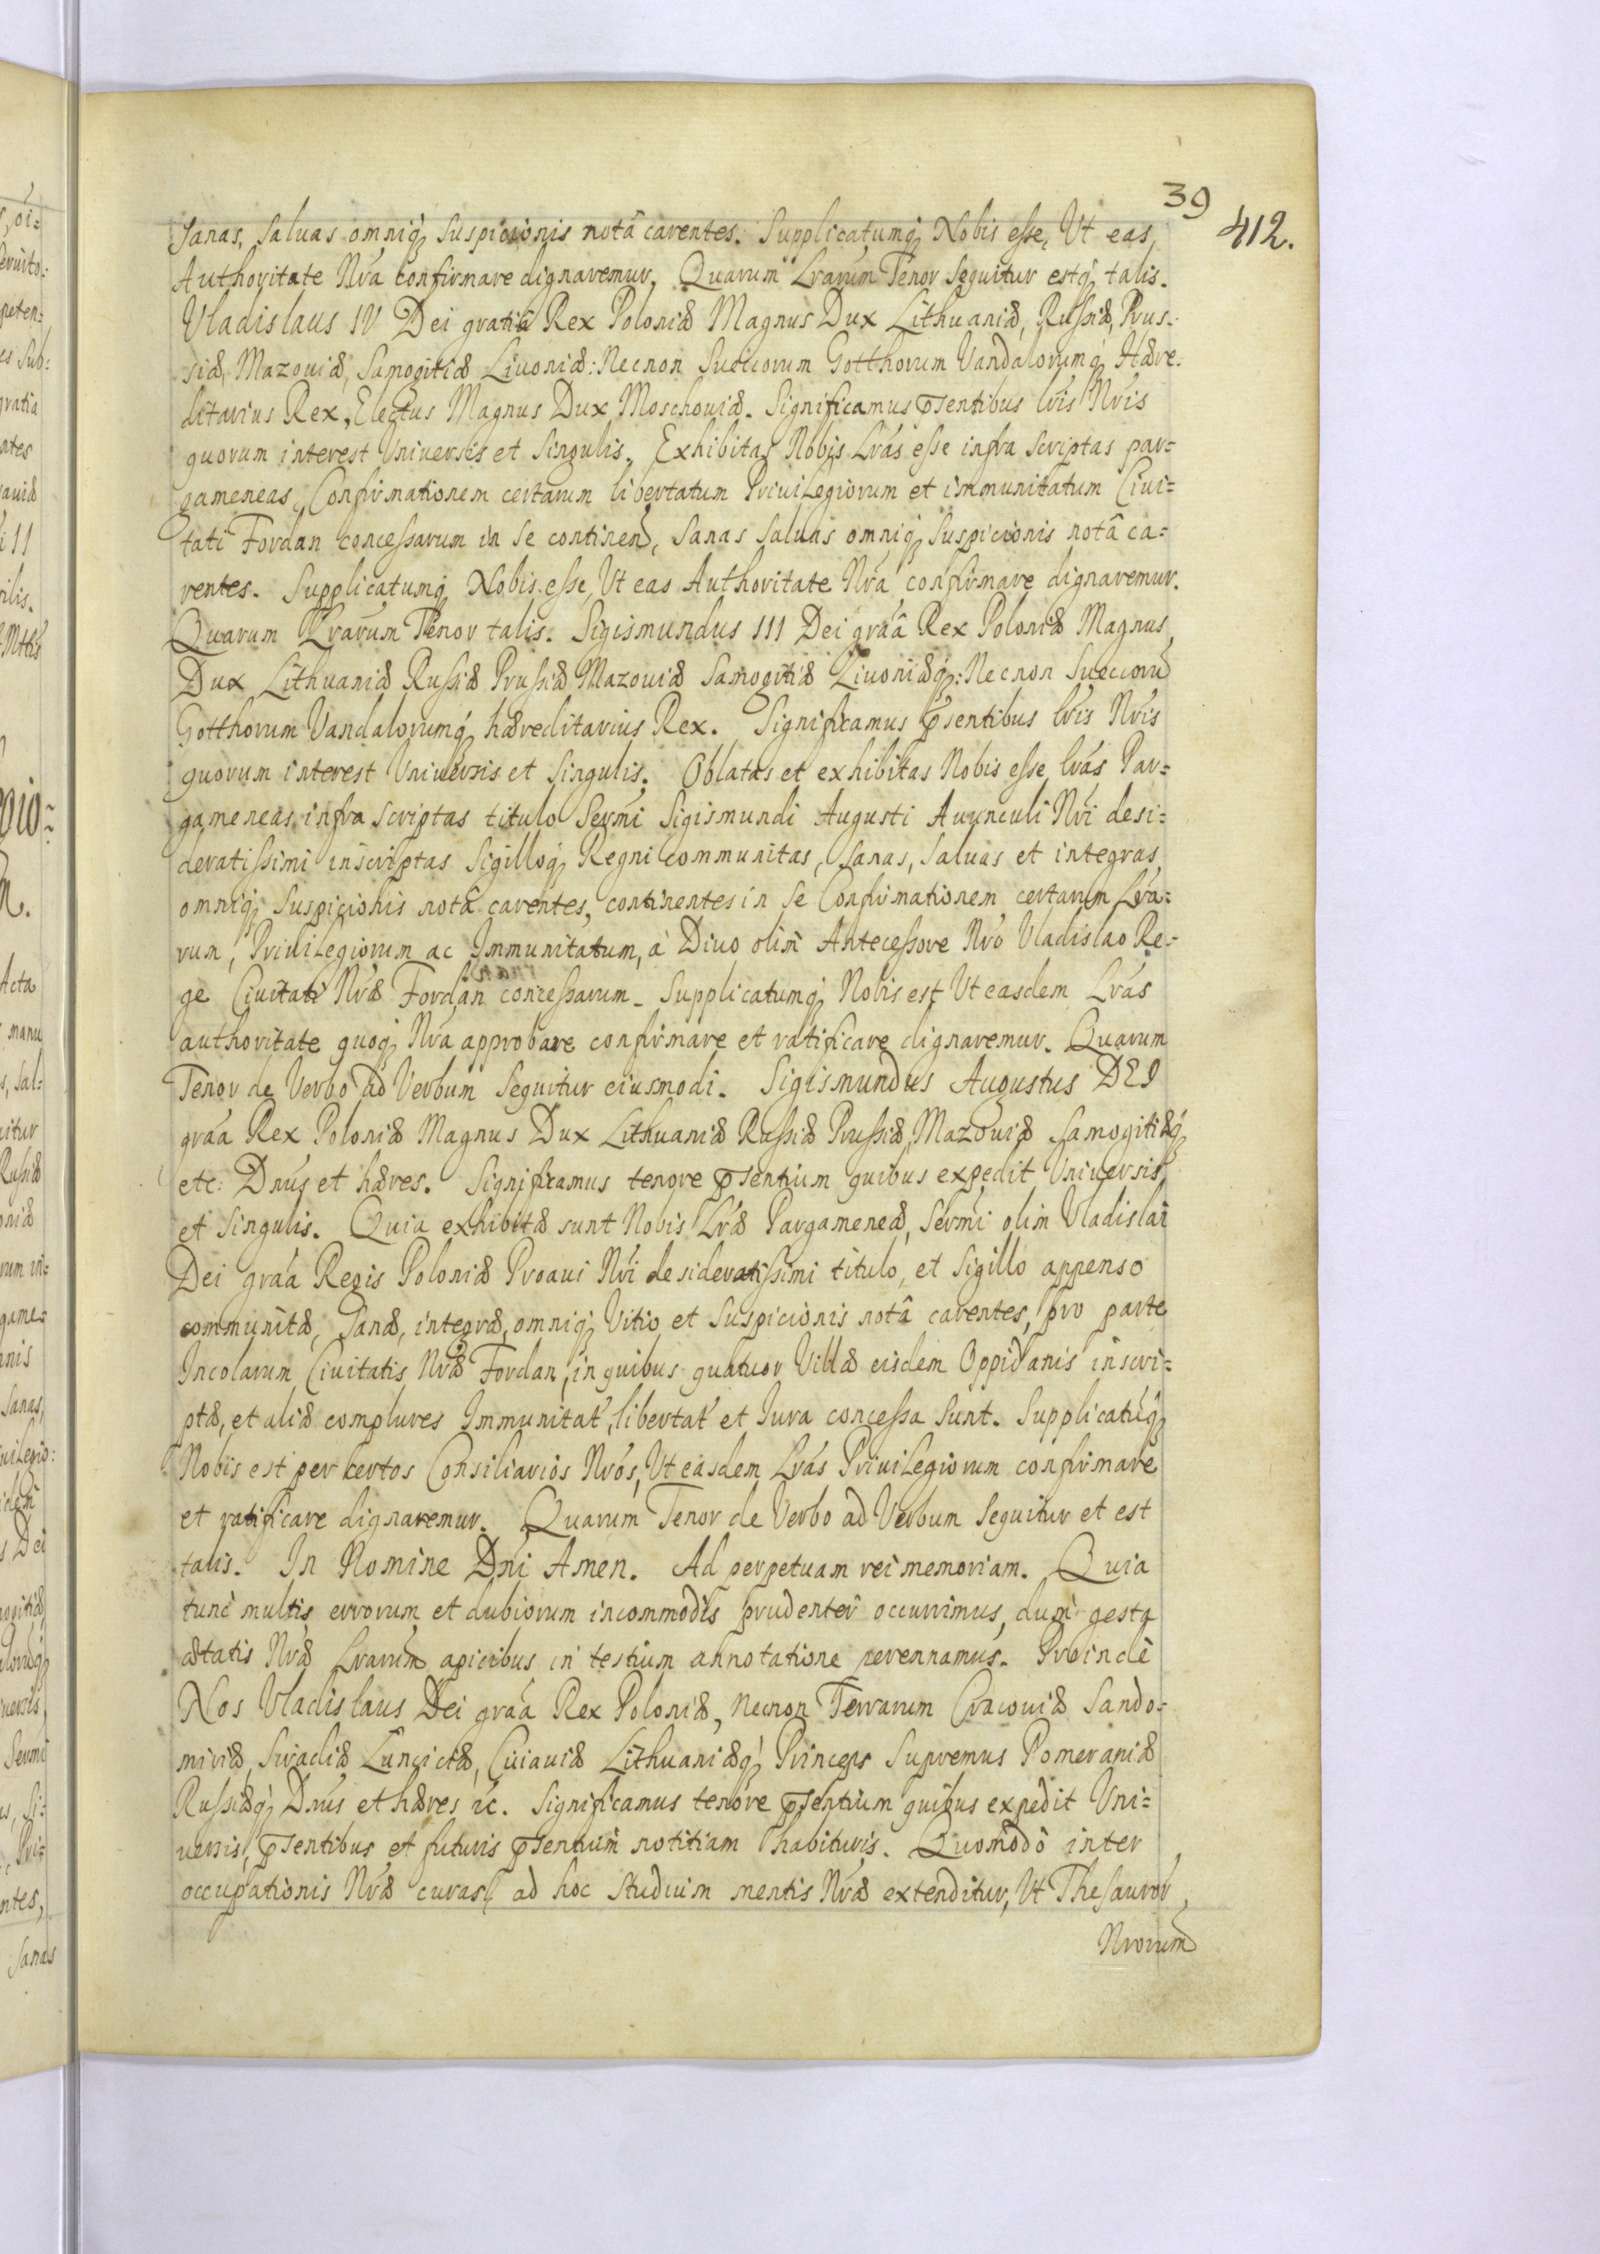 39
412.
sanas, saluas omniq́ suspicionis notâ carentes. Supplicatumq́ Nobis esse, Vt eas,
Authoritate Nrá confirmare dignaremur. Quarum Lrárum Tenor sequitur estq́ talis.
Vladislaus IV Dei gratiâ Rex Poloniæ Magnus Dux Lithuaniæ, Russiæ, Prus-
siæ, Mazouiæ, Samogitiæ Liuoniæ: Necnon Sueccorum Gotthorum Vandalorumq́ Hære-
ditarius Rex, Electus Magnus Dux Moschouiæ. Significamus pśentibus lrís Nrís
quorum interest Vniuersis et singulis. Exhibitas Nobis Lrás esse infra scriptas par=
gameneas, Confirmationem certarum libertatum Priuilegiorum et immunitatum Ciui=
tati Fordan concessarum in se continen, sanas saluas omniq́ suspicionis notâ ca=
rentes. Supplicatumq́ Nobis esse, Vt eas Authoritate Nrá confirmare dignaremur.
Quarum Lrárum Tenor talis. Sigismundus III Dei gráâ Rex Poloniæ Magnus
Dux Lithuaniæ Russiæ Prussiæ Mazouiæ Samogitiæ Liuoniæq́: Necnon Sueccoru
Gotthorum Vandalorumq́ hæreditarius Rex. Significamus pśentibus lrís Nrís
quorum interest Vniuersis et singulis. Oblatas et exhibitas Nobis esse lrás Par=
gameneas infra scriptas titulo Sermí Sigismundi Augusti Auunculi Nrí desi=
deratissimi inscriptas sigilloq́ Regni communitas, sanas, saluas et integras
omniq́ suspicionis notâ carentes, continentes in se Confirmationem certarum Lrá=
rum, Priuilegiorum ac Immunitatum, à Diuo olim Antecessore Nró Vladislao Re-
ge Ciuitati Nræ Fordan concessarum. Supplicatumq́ Nobis est Vt easdem Lrás
authoritate quoq́ Nrá approbare confirmare et ratificare dignaremur. Quarum
Tenor de Verbo ad Verbum sequitur eiusmodi. Sigismundus Augustus DEI
gráa Rex Poloniæ Magnus Dux Lithuaniæ Russiæ Prussiæ, Mazouiæ Samogitiæq́
etc: Dnús et hæres. Significamus tenore pśentium quibus expedit Vniuersis
et singulis. Quia exhibitæ sunt Nobis Lræ Pargameneæ, Sermí olim Vladislai
Dei gráa Regis Poloniæ Proaui Nrí desideratissimi titulo, et sigillo appenso
communitæ, sanæ, integræ, omniq́ Vitio et suspicionis notâ carentes, pro parte
Incolarum Ciuitatis Nræ Fordan, in quibus quatuor Villæ eisdem Oppidanis inscri=
ptæ, et aliæ complures Immunitat́, libertat́ et Iura concessa sunt. Supplicatúq́
Nobis est per certos Consiliarios Nrós, Vt easdem Lrás Priuilegiorum confirmare
et ratificare dignaremur. Quarum Tenor de Verbo ad Verbum sequitur et est
talis. In Nomine Dní Amen. Ad perpetuam rei memoriam. Quia
tunc multis errorum et dubiorum incommodis prudenter occurrimus, dum gesta
ætatis Nræ Lrárum apicibus in testium annotatione perennamus. Proinde
Nos Vladislaus Dei gráa Rex Poloniæ, Necnon Terrarum Cracouiæ Sando-
miriæ, Siradiæ Lunciciæ, Cuiauiæ Lithuaniæq́ Princeps Supremus Pomeraniæ
Russiæq́ Dnús et hæres ꝛc. Significamus tenore pśentium quibus expedit Vni=
uersis, pśentibus et futuris pśentium notitiam habituris. Quomodo inter
occupationis Nræ curas, ad hoc studium mentis Nræ extenditur, Vt Thesauror
Nrorum